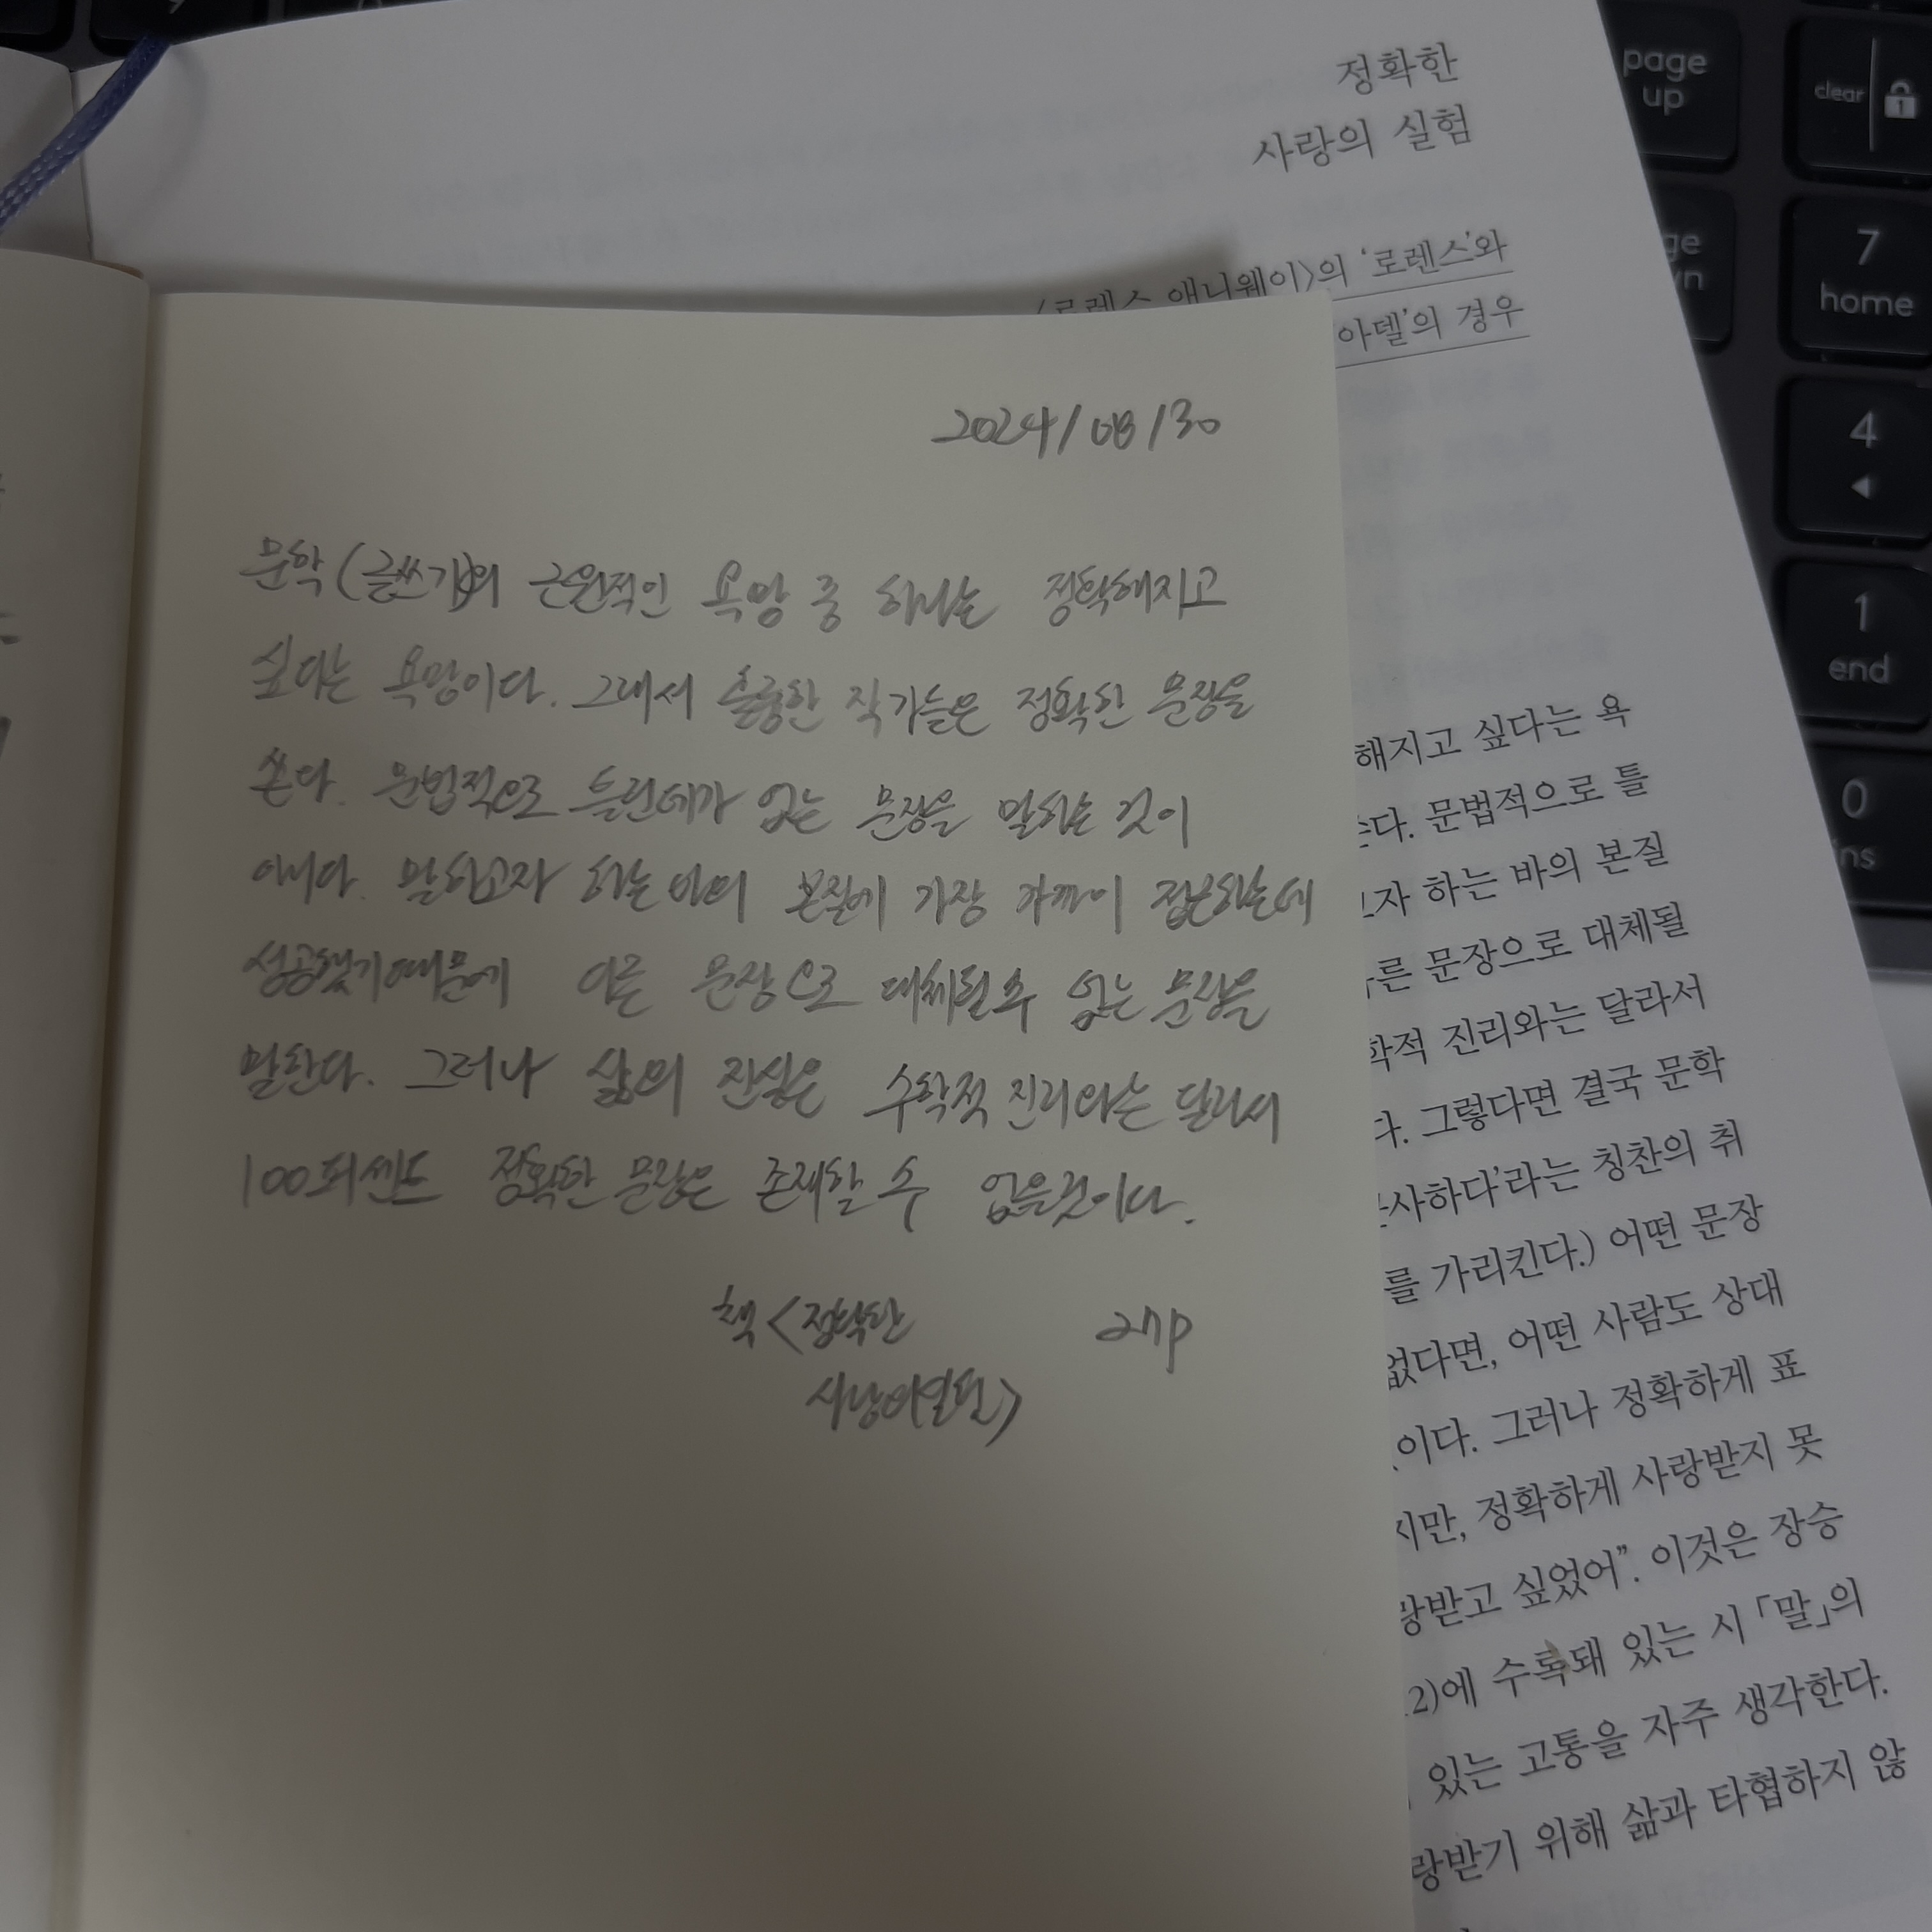 정확한
사랑의 실험
애니웨이〉의 ‘로렌스’와
아델’의 경우
2024/08/30
문학(글쓰기)의 근원적인 욕망 중 하나는 정확해지고
싶다는 욕망이다. 그래서 훌륭한 작가들은 정확한 문장을
쓴다. 문법적으로 틀린데가 없는 문장을 말하는 것이
아니다. 말하고자 하는 바의 본질에 가장 가까이 접근하는데
성공했기때문에 다른 문장으로 대체될 수 없는 문장을
말한다. 그러나 삶의 진실은 수학적 진리와는 달라서
100퍼센트 정확한 문장은 존재할 수 없을것이다.
책 <정확한 27p
사랑의실험>
해지고 싶다는 욕
다. 문법적으로 틀
자 하는 바의 본질
른 문장으로 대체될
학적 진리와는 달라서
다. 그렇다면 결국 문학
사하다’라는 칭찬의 취
를 가리킨다.) 어떤 문장
없다면, 어떤 사람도 상대
이다. 그러나 정확하게 표
지만, 정확하게 사랑받지 못
랑받고 싶었어”. 이것은 장승
2)에 수록돼 있는 시 「말」의
있는 고통을 자주 생각한다.
랑받기 위해 삶과 타협하지 않
page
up
clear
7
home
4
1
end
0
ins